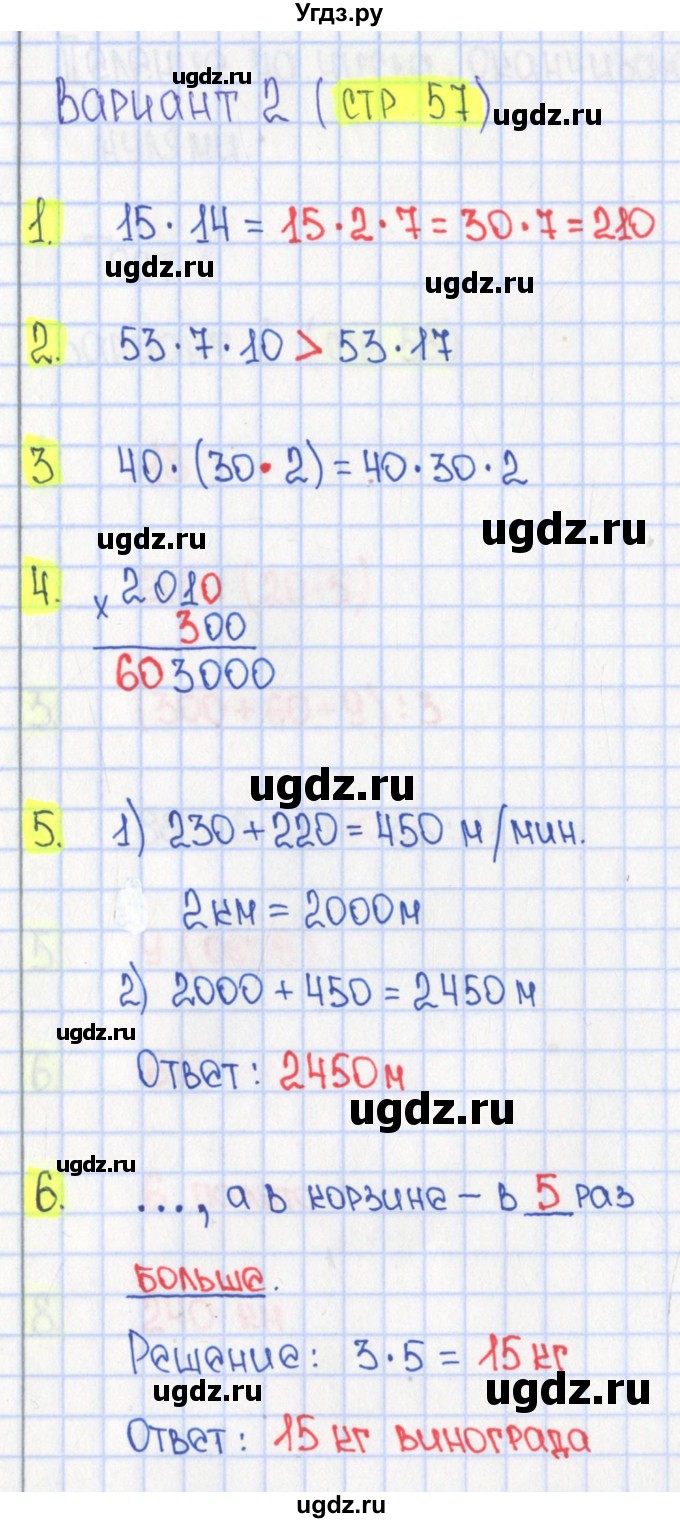 Угдз.ру
ugdz.ru
Вариант 2 (стр 57)
ugdz.ru
1. 15·14 = 15·2·7 = 30·7 = 210
ugdz.ru
ugdz.ru
2. 53·7·10 > 53·17
3 40·(30·2) = 40·30·2
ugdz.ru
ugdz.ru
4. × 2010
300
603000
ugdz.ru
5. 1) 230 + 220 = 450 м/мин.
2км = 2000м
2) 2000 + 450 = 2450 м
ugdz.ru
Ответ: 2450м
ugdz.ru
ugdz.ru
6. ..., а в корзине – в 5 раз
больше.
Решение: 3·5 = 15 кг
ugdz.ru
ugdz.ru
Ответ: 15 кг винограда
ugdz.ru